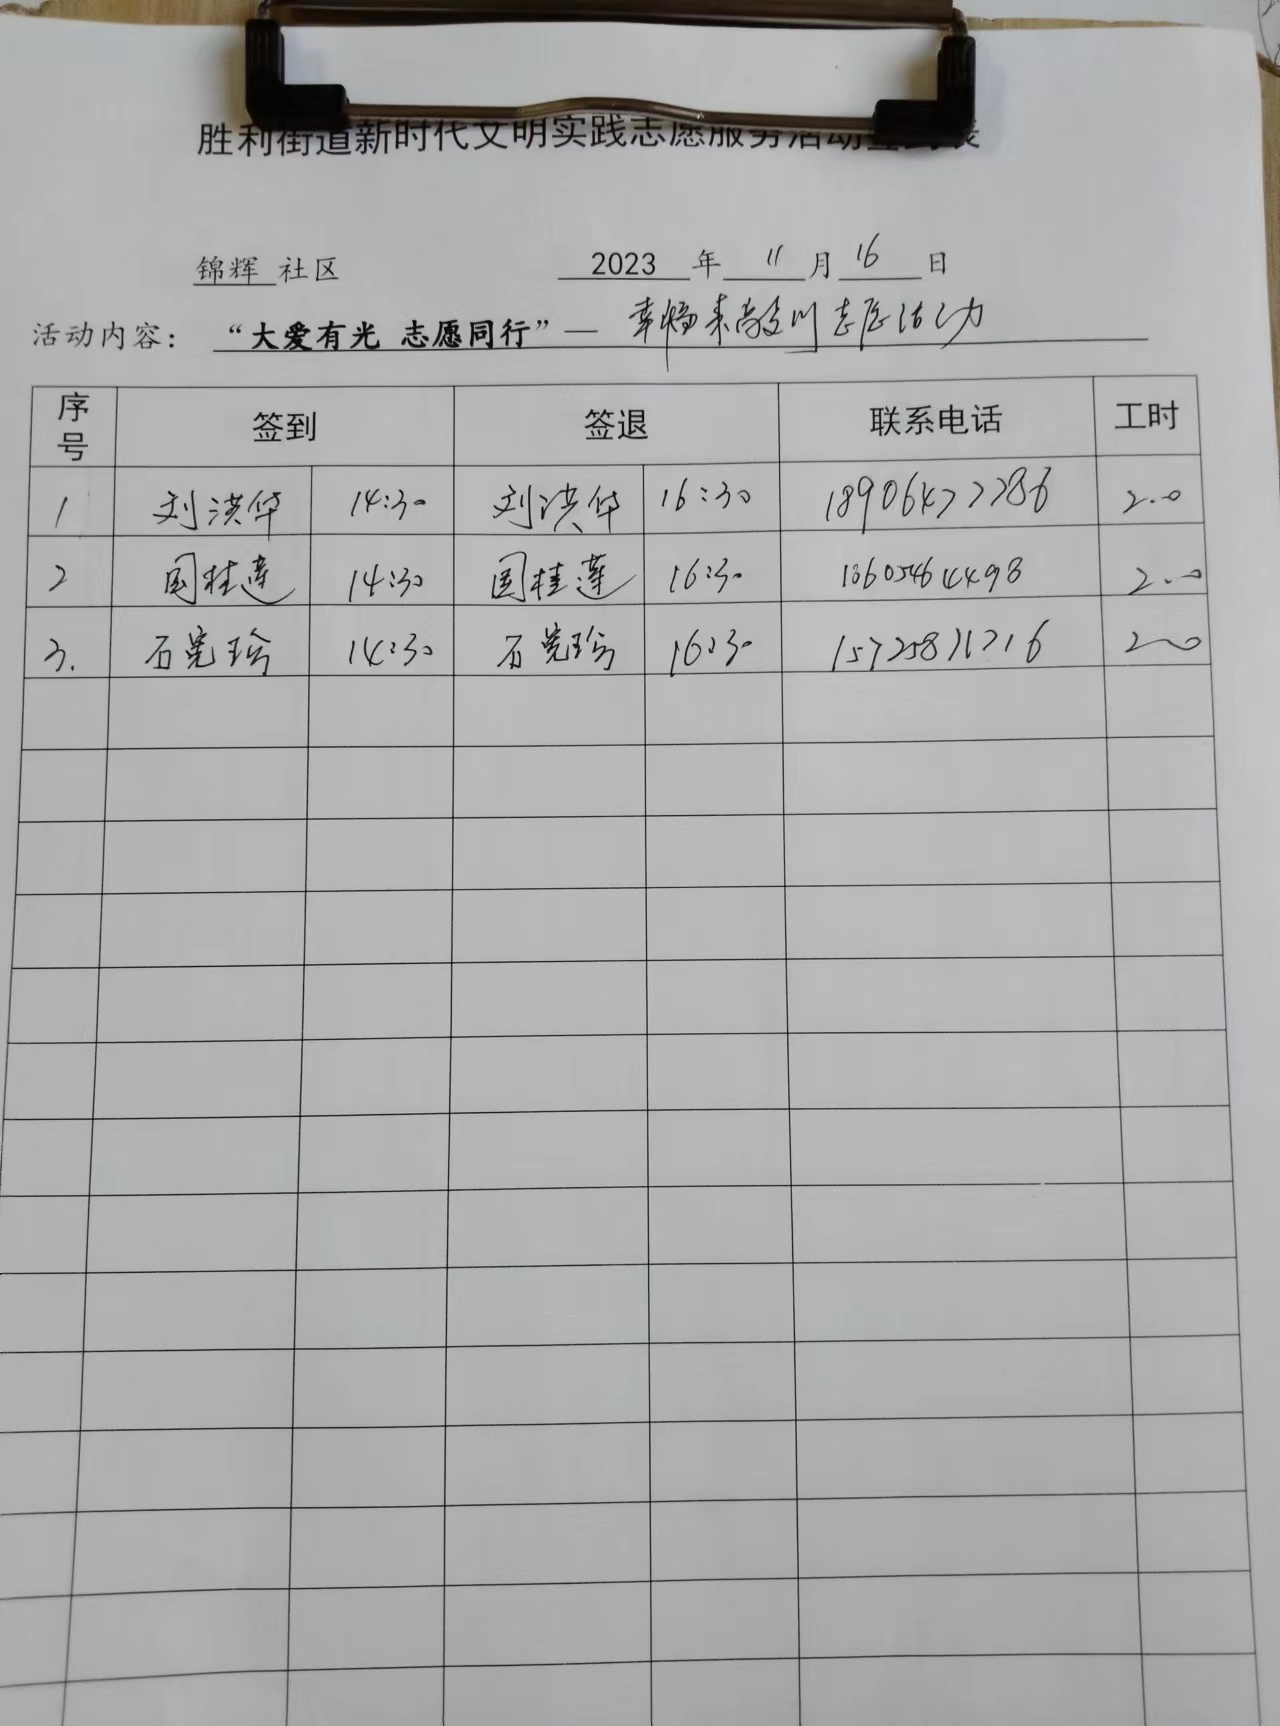 胜利街道新时代文明实践志愿服务活动签到表
锦辉 社区 2023 年 11 月 16 日
活动内容：“大爱有光 志愿同行”— 幸福来敲门志愿活动
序号 签到 签退 联系电话 工时
1 刘洪华 14:30 刘洪华 16:30 18906477286 2.0
2 国桂莲 14:30 国桂莲 16:30 2.0
3. 石 珍 14:30 石 珍 16:30 2.0